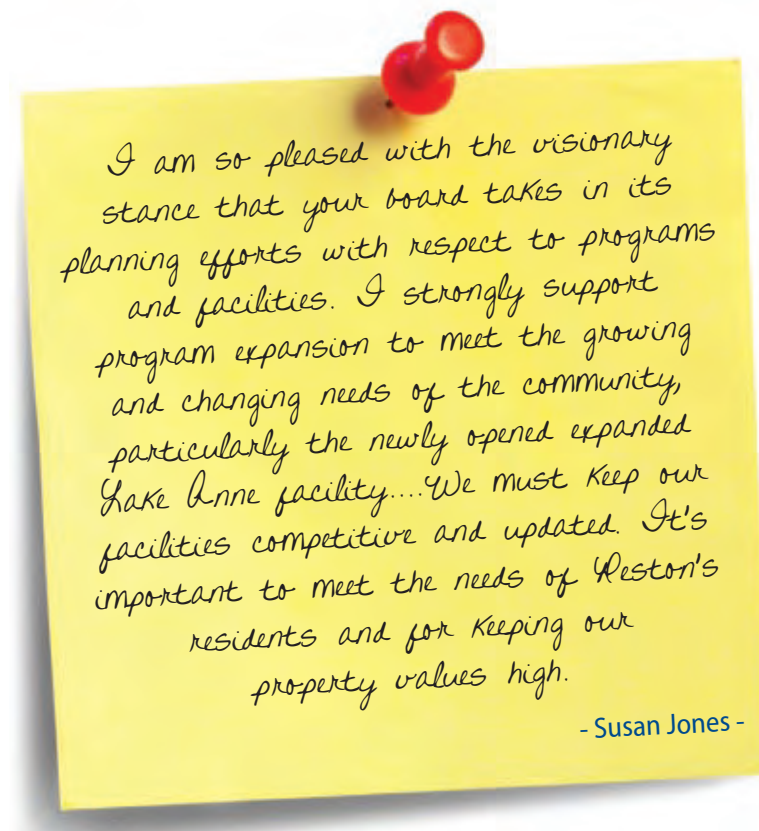 I am so pleased with the visionary
stance that your board takes in its
planning efforts with respect to programs
and facilities. I strongly support
program expansion to meet the growing
and changing needs of the community,
particularly the newly opened expanded
Lake Anne facility....We must keep our
facilities competitive and updated. It's
important to meet the needs of Reston's
residents and for keeping our
property values high.
- Susan Jones -